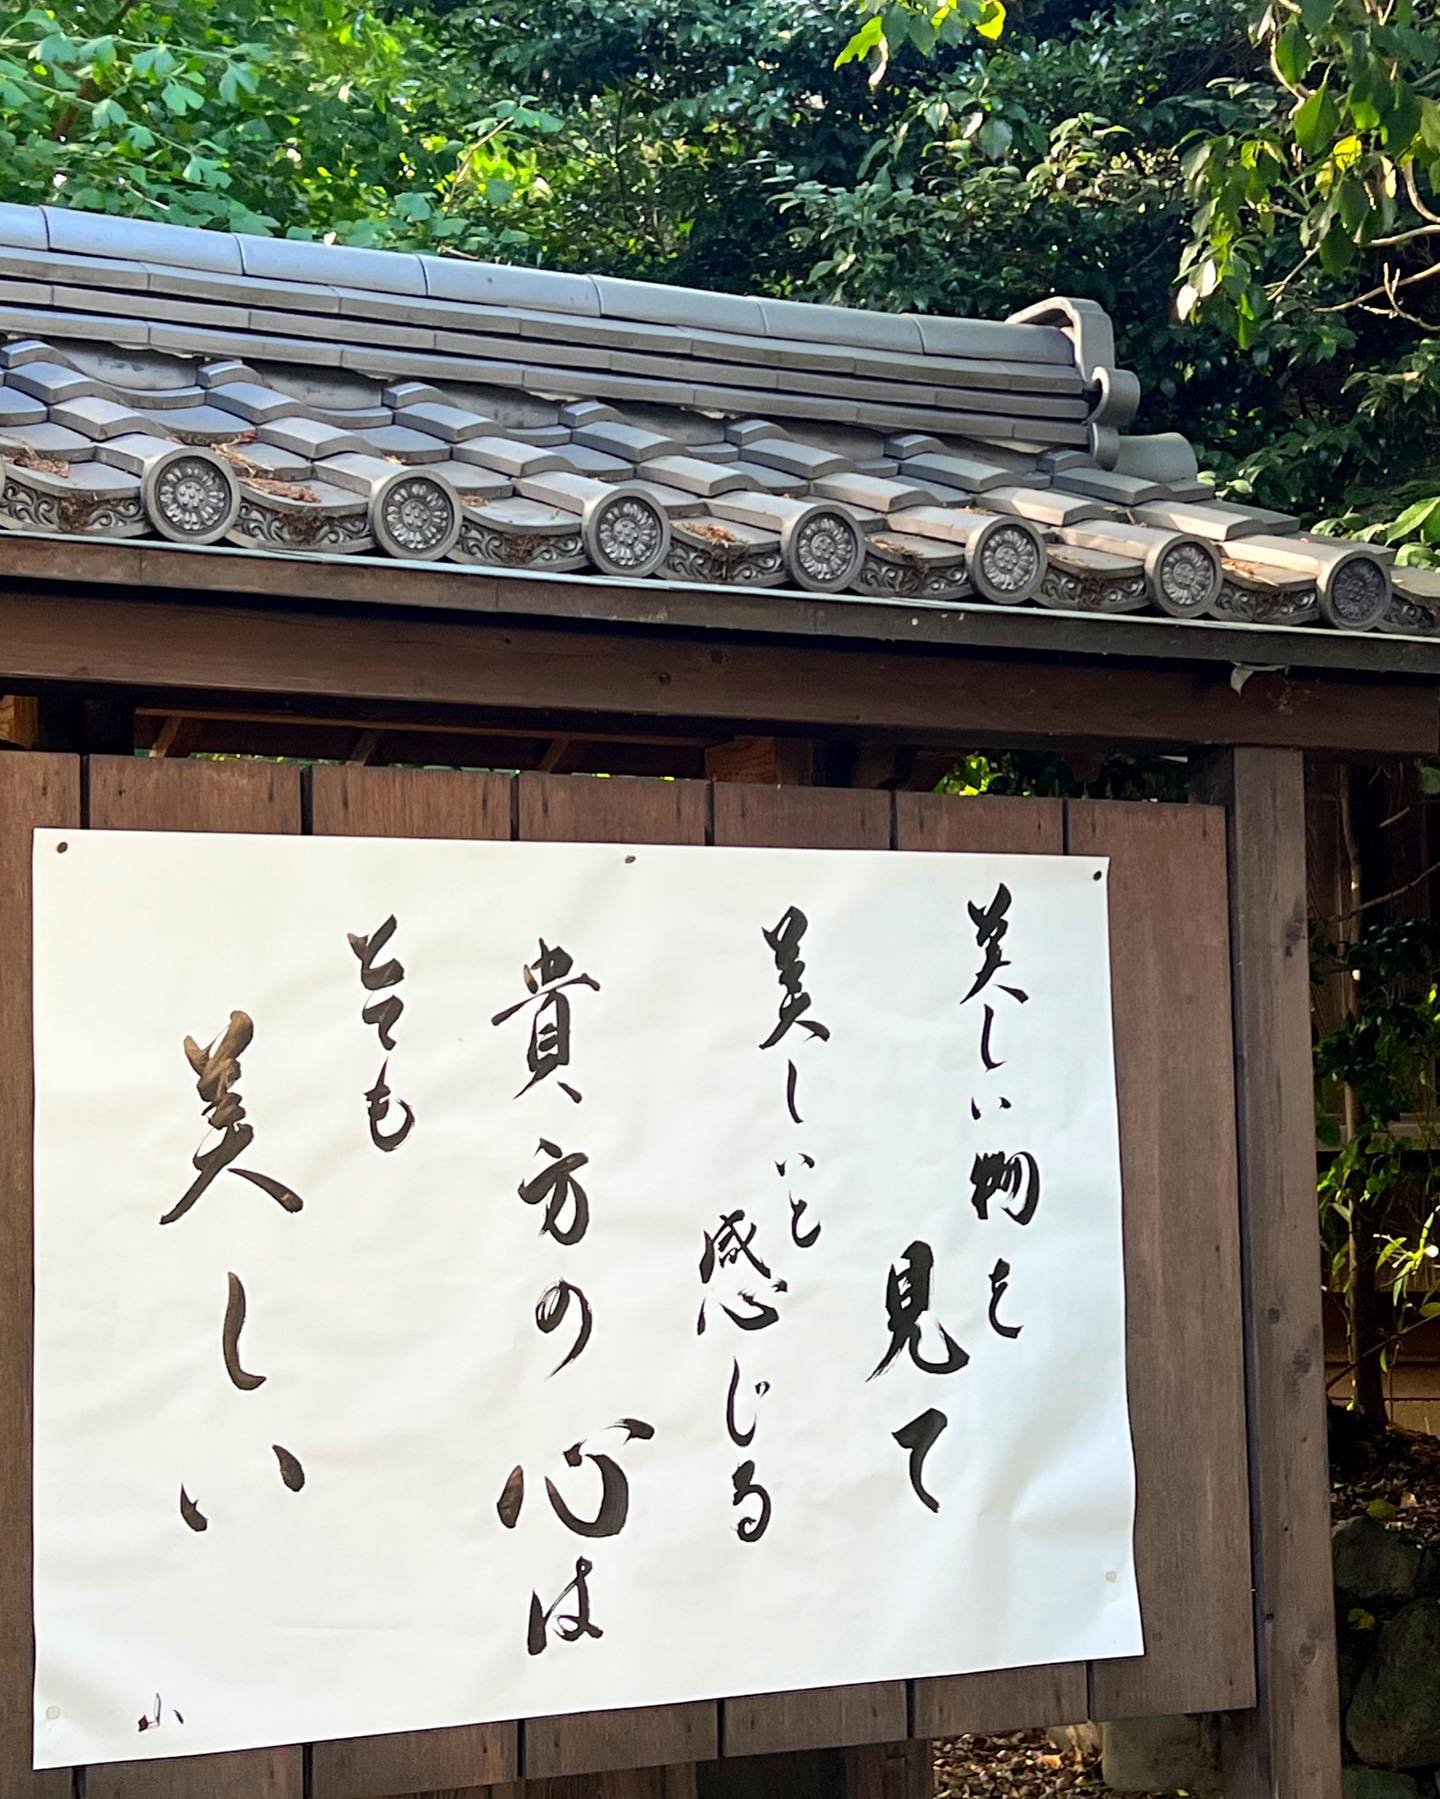 美しい物を
見て
美しいと
感じる
貴方の心は
とても
美しい